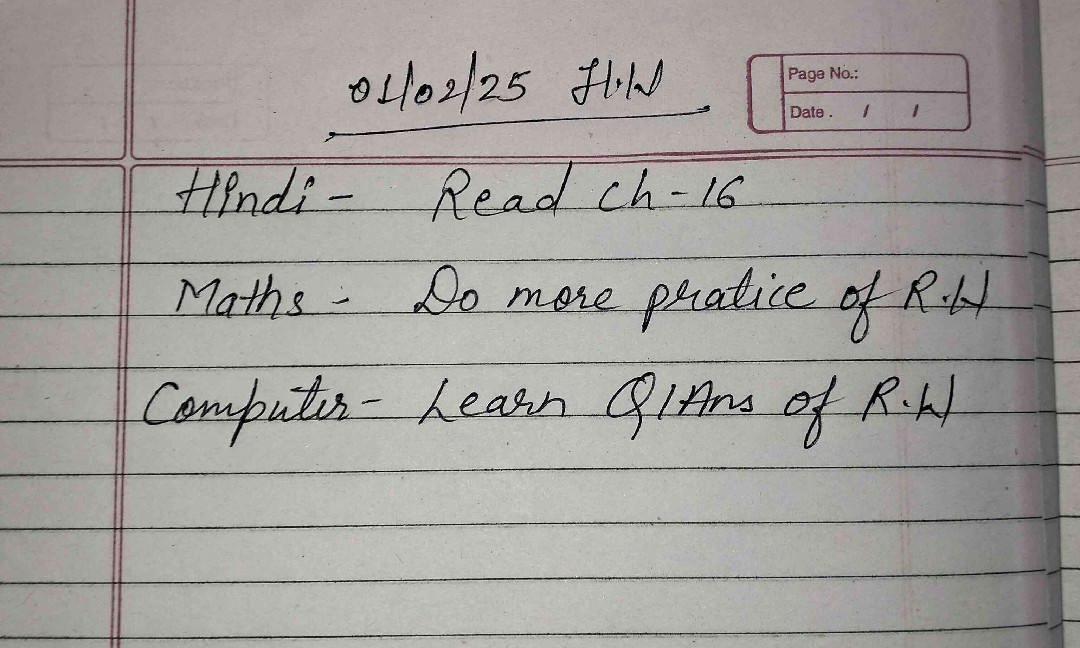 01/02/25 H.W
Page No.:
Date. / /
Hindi - Read Ch-16
Maths - Do more pratice of R.W
Computer - Learn Q/Ans of R.W